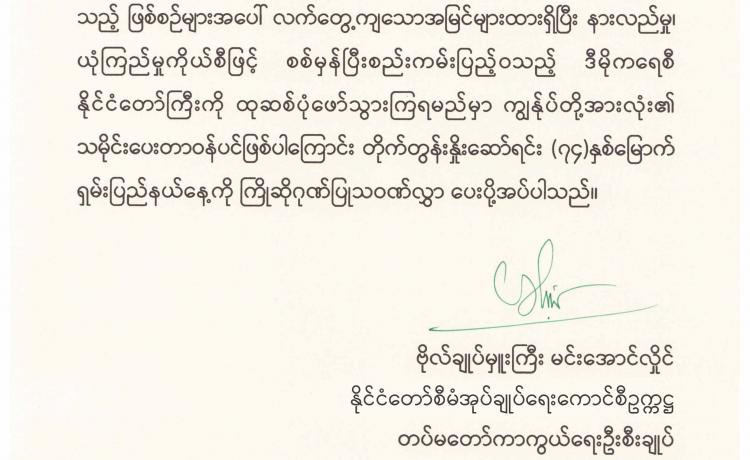 သည့် ဖြစ်စဉ်များအပေါ် လက်တွေ့ကျသောအမြင်များထားရှိပြီး နားလည်မှု၊
ယုံကြည်မှုကိုယ်စီဖြင့် စစ်မှန်ပြီးစည်းကမ်းပြည့်ဝသည့် ဒီမိုကရေစီ
နိုင်ငံတော်ကြီးကို ထုဆစ်ပုံဖော်သွားကြရမည်မှာ ကျွန်ုပ်တို့အားလုံး၏
သမိုင်းပေးတာဝန်ပင်ဖြစ်ပါကြောင်း တိုက်တွန်းနှိုးဆော်ရင်း (၇၄)နှစ်မြောက်
ရှမ်းပြည်နယ်နေ့ကို ကြိုဆိုဂုဏ်ပြုသဝဏ်လွှာ ပေးပို့အပ်ပါသည်။
ဗိုလ်ချုပ်မှူးကြီး မင်းအောင်လှိုင်
နိုင်ငံတော်စီမံအုပ်ချုပ်ရေးကောင်စီဥက္ကဋ္ဌ
တပ်မတော်ကာကွယ်ရေးဦးစီးချုပ်